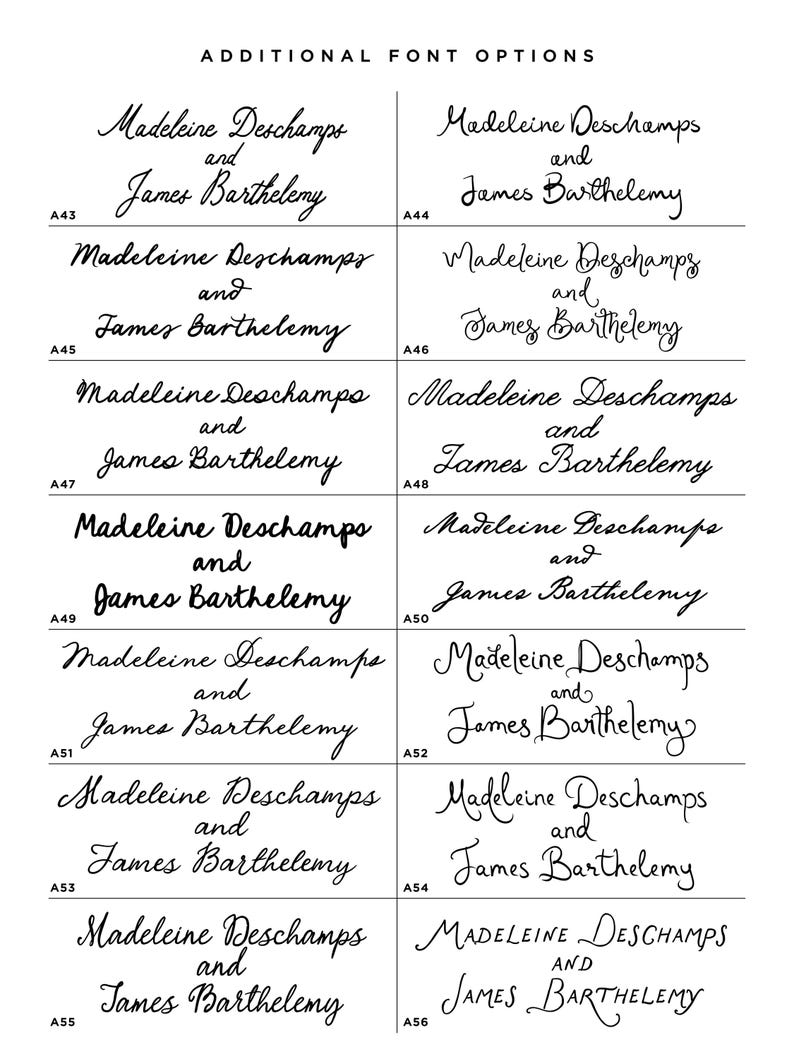 ADDITIONAL FONT OPTIONS
Madeleine Deschamps
and
James Barthelemy
A43
Madeleine Deschamps
and
James Barthelemy
A44
Madeleine Deschamps
and
James Barthelemy
A45
Madeleine Deschamps
and
James Barthelemy
A46
Madeleine Deschamps
and
James Barthelemy
A47
Madeleine Deschamps
and
James Barthelemy
A48
Madeleine Deschamps
and
James Barthelemy
A49
Madeleine Deschamps
and
James Barthelemy
A50
Madeleine Deschamps
and
James Barthelemy
A51
Madeleine Deschamps
and
James Barthelemy
A52
Madeleine Deschamps
and
James Barthelemy
A53
Madeleine Deschamps
and
James Barthelemy
A54
Madeleine Deschamps
and
James Barthelemy
A55
MADELEINE DESCHAMPS
AND
JAMES BARTHELEMY
A56